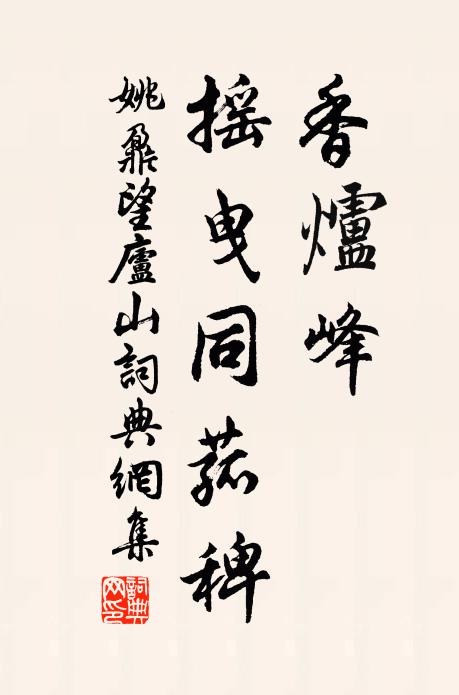 香爐峰
搖曳同菰稗
姚鼐望廬山詞典網集
詞典网印